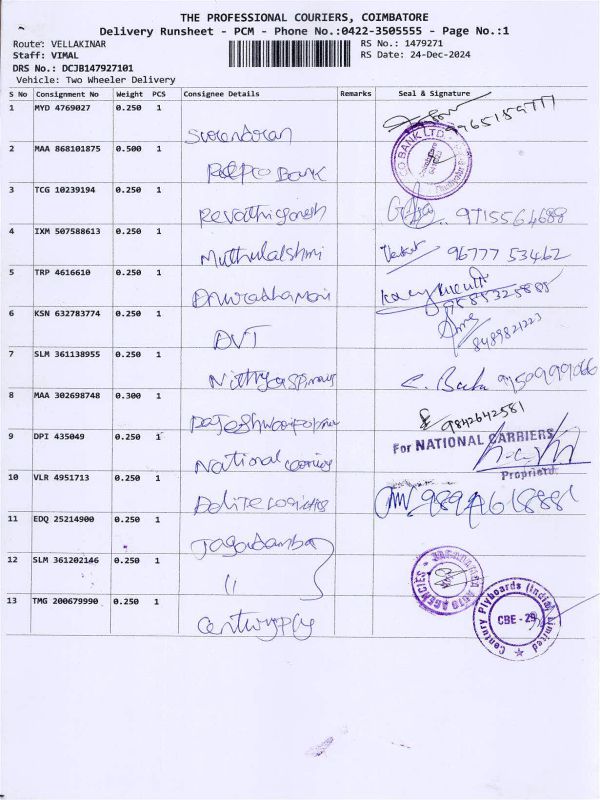 THE PROFESSIONAL COURIERS, COIMBATORE
Delivery Runsheet - PCM - Phone No.:0422-3505555 - Page No.:1
Route: VELLAKINAR RS No.: 1479271
Staff: VIMAL RS Date: 24-Dec-2024
DRS No.: DCJB147927101
Vehicle: Two Wheeler Delivery
S No Consignment No Weight PCS Consignee Details Remarks Seal & Signature
1 MYD 4769027 0.250 1 Surendran
2 MAA 868101875 0.500 1 Repco Bank CO BANK LTD
3 TCG 10239194 0.250 1 Revathiganesh 9715564688
4 IXM 507588613 0.250 1 Muthulakshmi Venkat 96777 53462
5 TRP 4616610 0.250 1 Anuradhamani 9688325888
6 KSN 632783774 0.250 1 DVT 8489821223
7 SLM 361138955 0.250 1 Nithya spinners
8 MAA 302698748 0.300 1 9842642581
9 DPI 435049 0.250 1 National carrier For NATIONAL CARRIERS
Proprietor
10 VLR 4951713 0.250 1
11 EDQ 25214900 0.250 1 Jagadamba
12 SLM 361202146 0.250 1 〃 JAGADAMBA AUTO AGENCIES
13 TMG 200679990 0.250 1 Centuryply Century Plyboards (India) Limited
CBE - 29